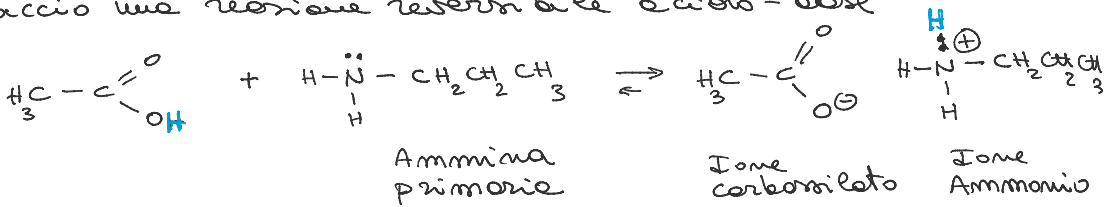 faccio una reazione reversibile acido-base
H₃C-C(=O)-OH + H-N̈(H)-CH₂CH₂CH₃ ⇌ H₃C-C(=O)-O⊖ H-N⊕(H)(H)-CH₂CH₂CH₃
Ammina primaria
Ione carbossilato
Ione Ammonio